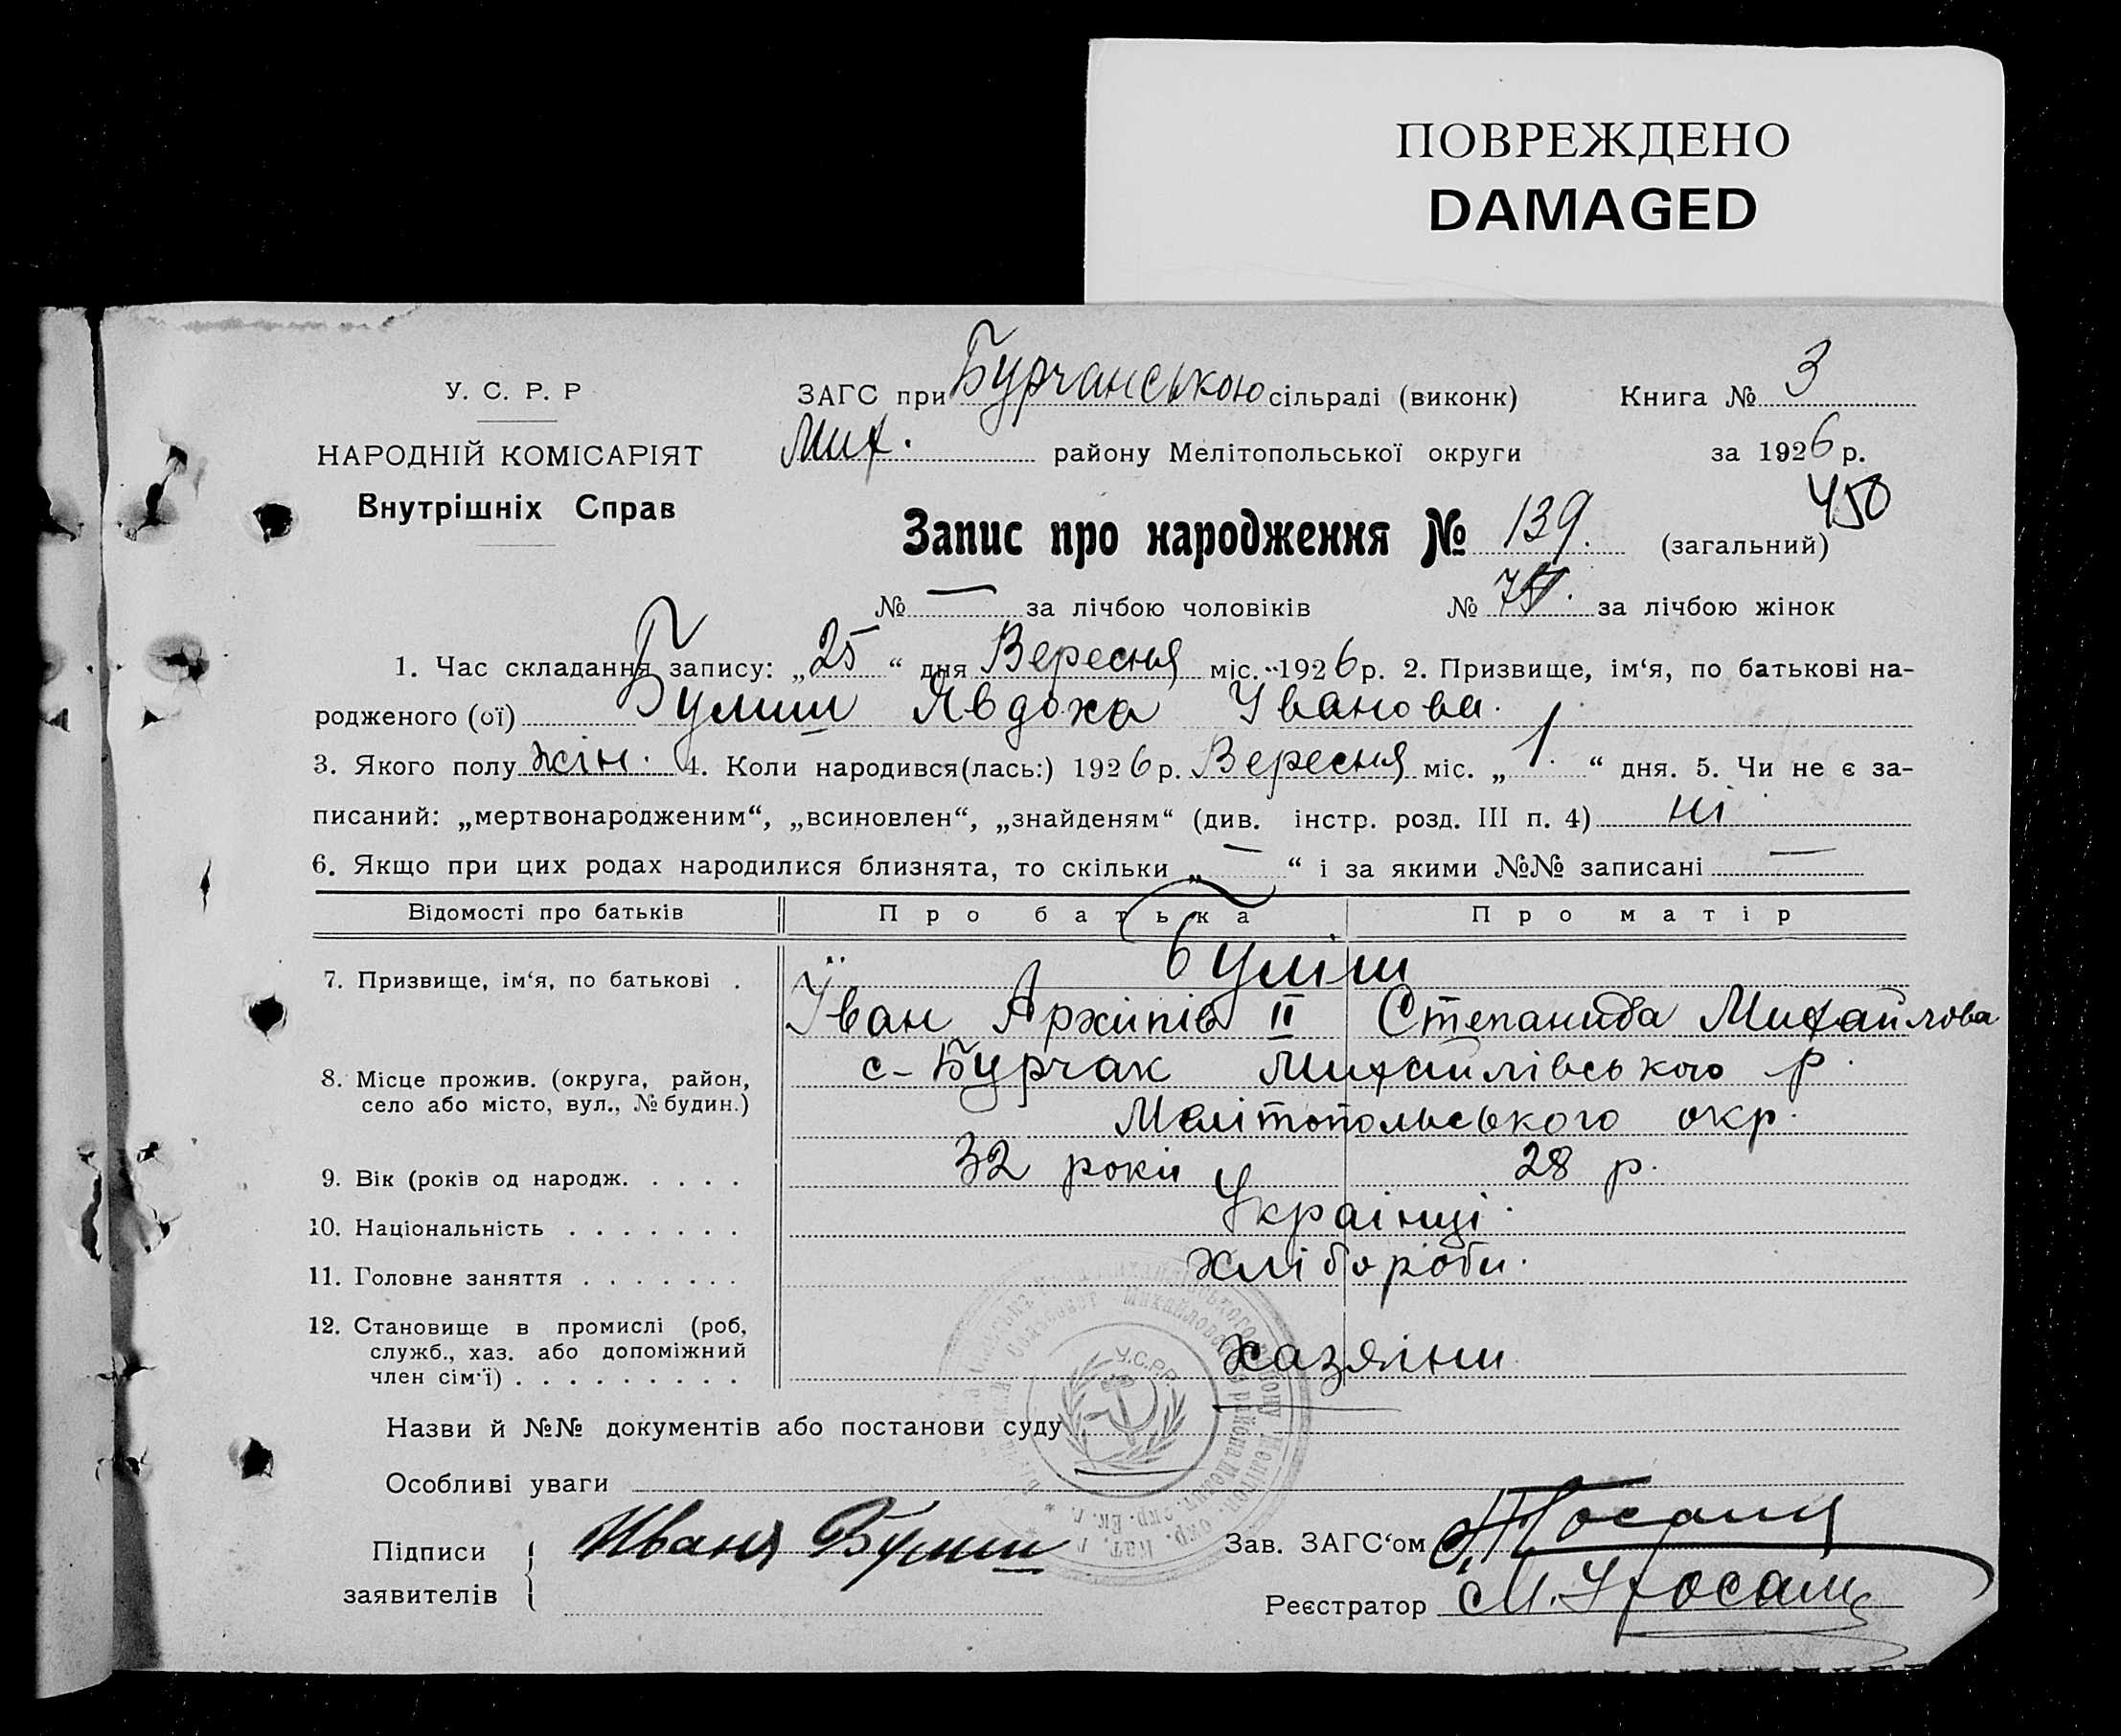 ПОВРЕЖДЕНО
DAMAGED
У. С. Р. Р
НАРОДНІЙ КОМІСАРІЯТ
Внутрішніх Справ
ЗАГС при Бурчанською сільраді (виконк)
Книга № 3
Мих. району Мелітопольської округи
за 1926 р.
450
Запис про народження № 139. (загальний)
№ — за лічбою чоловіків № за лічбою жінок
1. Час складання запису: „25“ дня Вересня міс. 1926 р. 2. Призвище, ім‘я, по батькові на-
родженого (ої) Булиш Явдоха Іванова.
3. Якого полу жін. 4. Коли народився(лась:) 1926 р. Вересня міс. „1.“ дня. 5. Чи не є за-
писаний: „мертвонародженим“, „всиновлен“, „знайденям“ (див. інстр. розд. III п. 4) ні
6. Якщо при цих родах народилися близнята, то скільки „—“ і за якими №№ записані —
Відомості про батьків Про батька Про матір
Буліш
7. Призвище, ім‘я, по батькові . Їван Архипів II Степанида Михайлова
8. Місце прожив. (округа, район, с-Бурчак Михайлівського р.
село або місто, вул., № будин.) Мелітопольського окр.
9. Вік (років од народж. . . . . 32 роки 28 р.
10. Національність . . . . . . . Українці.
11. Головне заняття . . . . . . . хлібороби.
12. Становище в промислі (роб,
служб., хаз. або допоміжний хазяіни
член сім‘ї) . . . . . . . . .
У.С.Р.Р.
Назви й №№ документів або постанови суду
Особливі уваги
Підписи заявителів Иваня Булиш
Зав. ЗАГС‘ом
Реєстратор